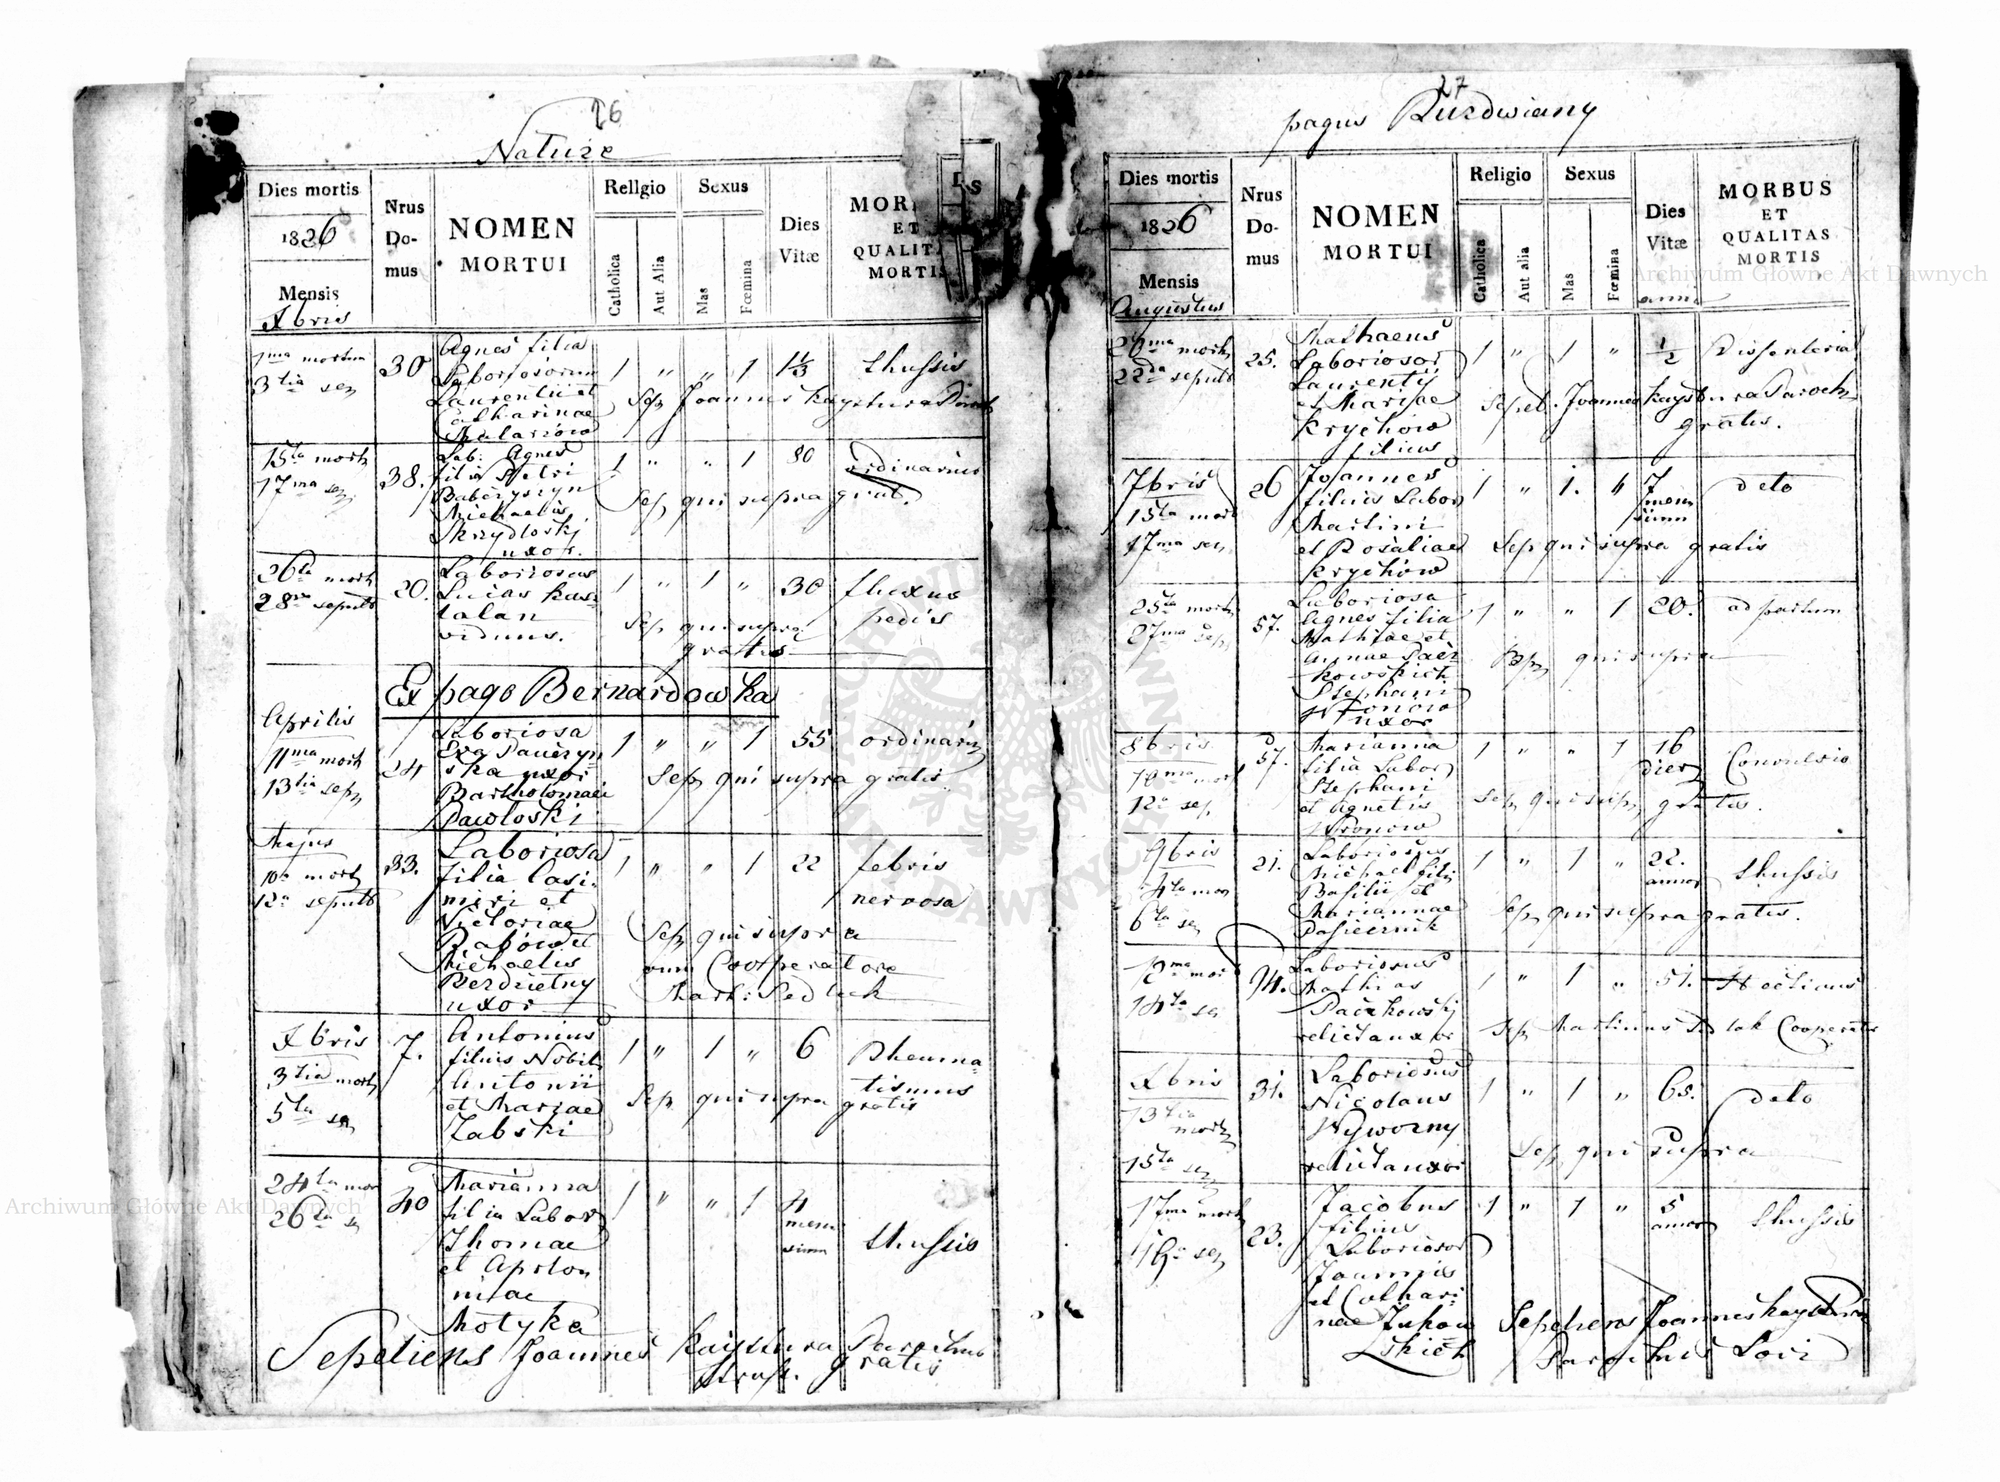 26
Naturze
Dies mortis
1826
Mensis
Xbris
Nrus
Do-
mus
NOMEN
MORTUI
Religio
Catholica
Aut Alia
Sexus
Mas
Fœmina
Dies
Vitæ
MOR
ET
QUALIT
MORTIS
1ma mortua
3tia sep
30
Agnes filia
Laboriosorum
Laurentii et
Catharinae
1 " " 1 1⅓ thussis
Sep Joannes Kaysztura Paroch
15ta mort
17ma sep
38.
Lab: Agnes
filia Petri
Babczyszyn
Michaelis
Skrzydloski
uxor.
1 " " 1 80 ordinarius
Sep qui supra grat.
26ta mort
28va sepult
20.
Laboriosus
Lucas Kasz
talan
viduus.
1 " 1 " 30 fluxus
pedis
Sep qui supra
gratis
Ex pago Bernardowka
Aprilis
11ma mort
13tia sep
24
Laboriosa
Eva
ska uxor
Bartholomaei
Pawloski
1 " " 1 55 ordinariu
Sep qui supra gratis
Majus
10a mort
12a sepult
33.
Laboriosa
filia Casi-
miri et
Victoriae
Babow et
Michaelis
Berdzietny
uxor
1 " " 1 22 febris
nervosa
Sep qui supra
cum Cooperatore
Mart: Sedlak
Xbris
3tia mort
5ta se
7.
Antonius
filius Nobil
Antonii
et Mariae
Zabski
1 " 1 " 6 Rheuma-
tismus
Sep qui supra gratis
24ta mor
26ta se
40
Marianna
filia Labor
Thomae
et Apolon
niae
Motyka
1 " " 1 4
mens
sium
thussis
Sepeliens Joannes Kaysztura Parochus
Strus. gratis
27
pagus Ruzdwiany
Dies mortis
1826
Mensis
Augustus
Nrus
Do-
mus
NOMEN
MORTUI
Religio
Catholica
Aut alia
Sexus
Mas
Fœmina
Dies
Vitæ
anni
MORBUS
ET
QUALITAS
MORTIS
20ma mort
22da sepult
25.
Mathaeus
Laboriosor
Laurentij
et Mariae
Krychow
filius
1 " 1 " ½ Dissenteria
Sepel. Joannes Kaysztura Paroch
gratis.
7bris
15ta mort
17ma sep
26
Joannes
filius Labor
Martini
et Rosaliae
Krychow
1 " 1. " 7
mens
sium
deto
Sep qui supra gratis
25ta mort
27ma Sep
57.
Laboriosa
Agnes filia
Mathiae et
Annae Pacz
kowskich
Stephani
Wronow
uxor
1 " " 1 20. ad partum
Sep qui supra
8bris
10ma mort
12a sep
57.
Marianna
filia Labor
Stephani
et Agnetis
Wronow
1 " " 1 16
dier
Convulsio
Sep qui sup gratis.
9bris
4ta mor
6ta se
21.
Laboriosus
Michael fili
Basilii et
Mariannae
Pasiecznik
1 " 1 " 22.
annor
thussis
Sep qui supra gratis.
12ma mor
14ta se
94.
Laboriosus
Mathias
Paczkowskj
relictauxor
1 " 1 " 51. Hecticus
Sep Martinus Sedlak Cooperator
Xbris
13tia
mort
15ta se
31.
Laboriosus
Nicolaus
Wyworny
relictauxor
1 " 1 " 65. deto
Sep qui supra
17ma mort
19a sep
23.
Jacobus
filius
Laboriosor
Joannis
et Cathari-
nae Zukow
skich
1 " 1 " 5
annor
thussis
Sepeliens Joannes Kaysztura
Parochus Loci
Archiwum Główne Akt Dawnych
Archiwum Główne Akt Dawnych
ARCHIWUM GŁÓWNE AKT DAWNYCH